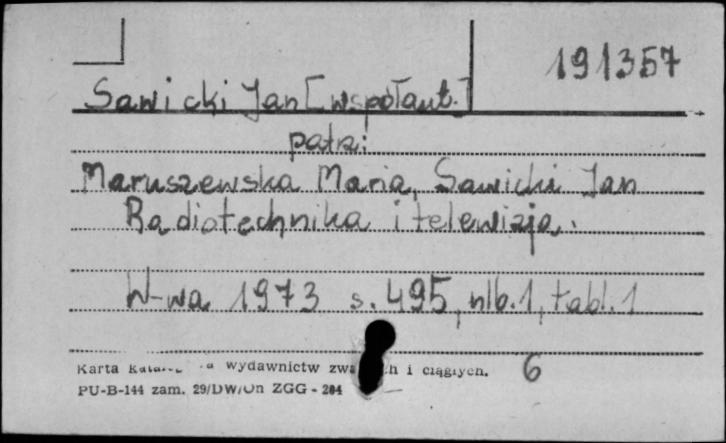 191357
Sawicki Jan [współaut.]
patrz:
Maruszewska Maria, Sawicki Jan
Radiotechnika i telewizja.
W-wa 1973 s. 495, nlb. 1, tabl. 1
6
Karta wydawnictw i ciągłych.
PU-B-144 zam. 29/DW/On ZGG - 204